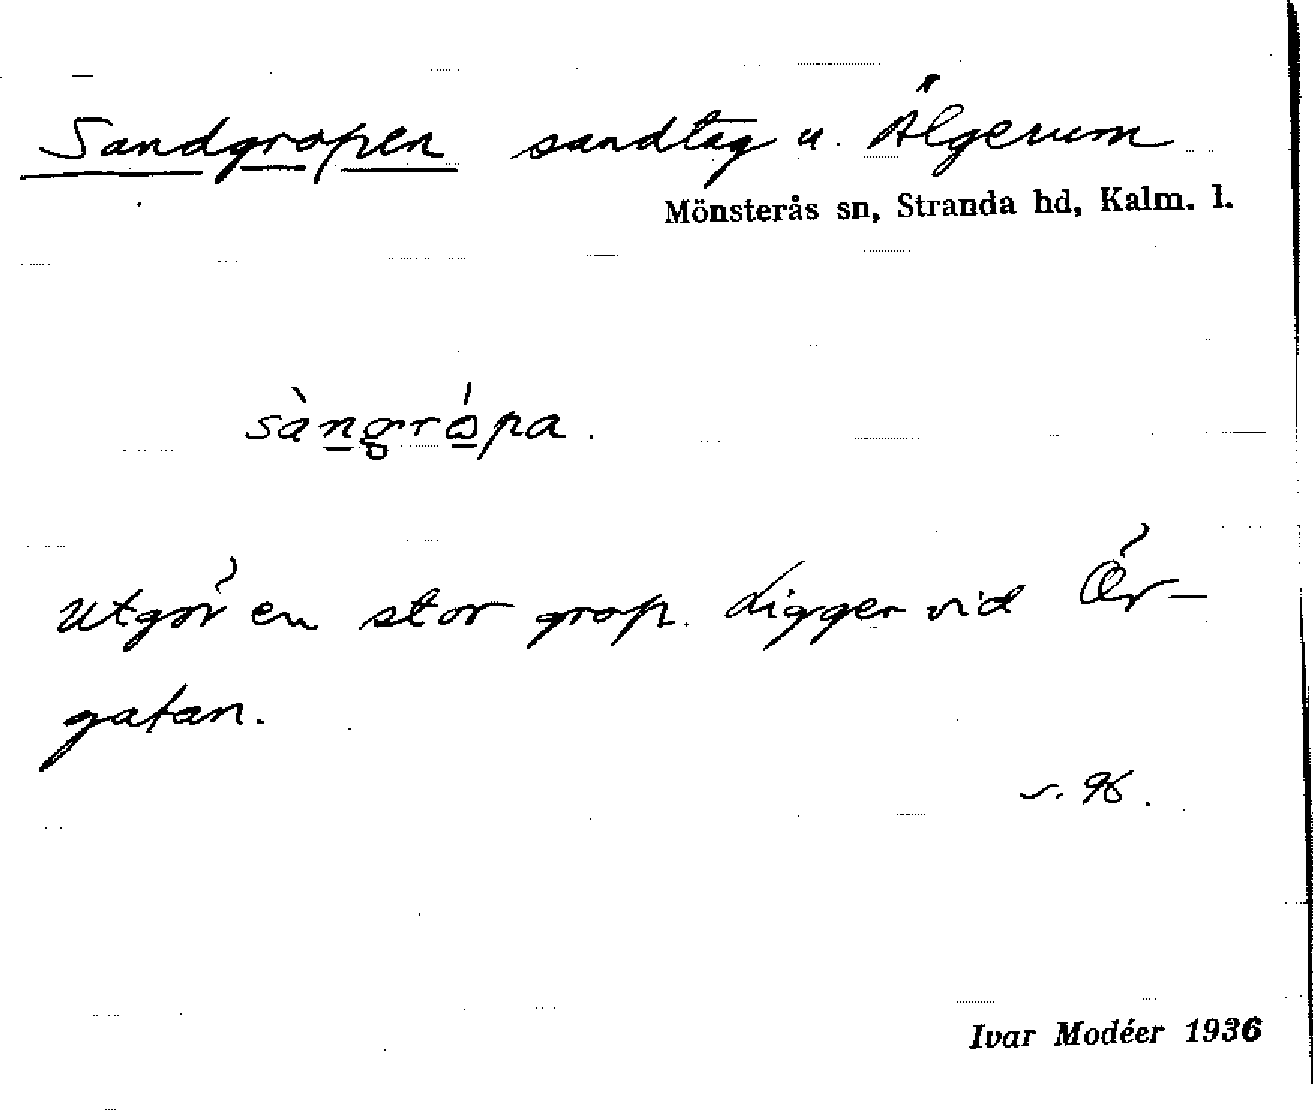 Sandgropen sandtag u. Älgerum
Mönsterås sn, Stranda hd, Kalm. l.
sàngrópa.
Utgör en stor grop. Ligger vid Ör-
gatan.
Ivar Modéer 1936